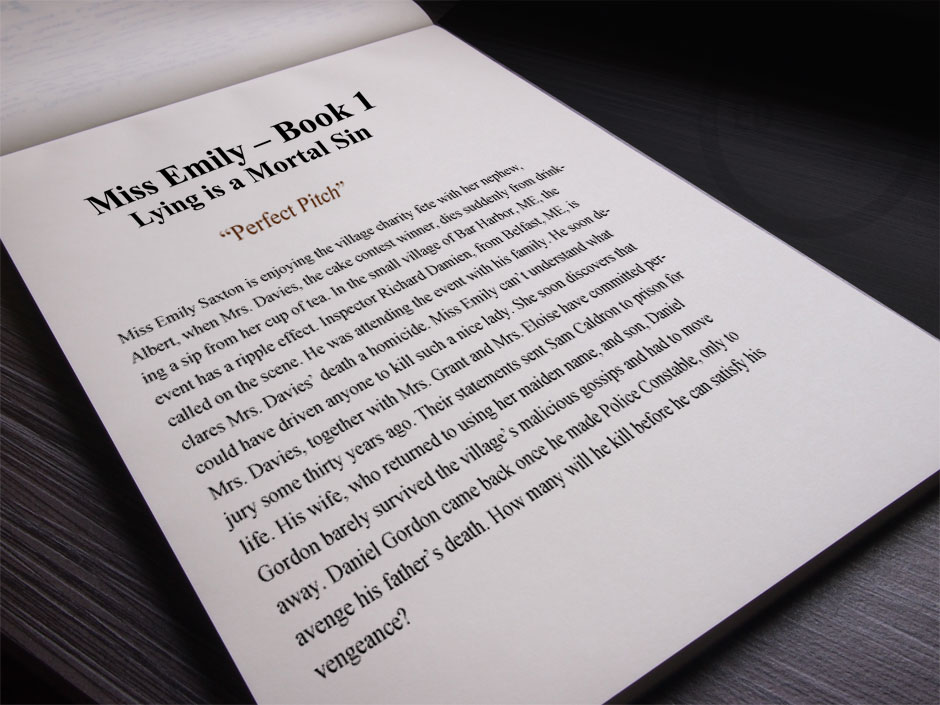 Miss Emily – Book 1
Lying is a Mortal Sin
“Perfect Pitch”
Miss Emily Saxton is enjoying the village charity fete with her nephew,
Albert, when Mrs. Davies, the cake contest winner, dies suddenly from drink-
ing a sip from her cup of tea. In the small village of Bar Harbor, ME, the
event has a ripple effect. Inspector Richard Damien, from Belfast, ME, is
called on the scene. He was attending the event with his family. He soon de-
clares Mrs. Davies’ death a homicide. Miss Emily can’t understand what
could have driven anyone to kill such a nice lady. She soon discovers that
Mrs. Davies, together with Mrs. Grant and Mrs. Eloise have committed per-
jury some thirty years ago. Their statements sent Sam Caldron to prison for
life. His wife, who returned to using her maiden name, and son, Daniel
Gordon barely survived the village’s malicious gossips and had to move
away. Daniel Gordon came back once he made Police Constable, only to
avenge his father’s death. How many will he kill before he can satisfy his
vengeance?